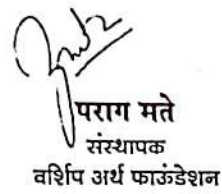 पराग मते
संस्थापक
वर्शिप अर्थ फाऊंडेशन